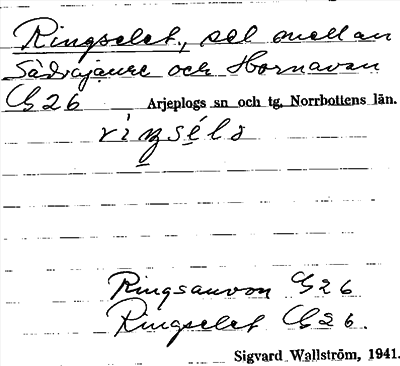 Ringselet, sel mellan
Sädvajaure och Hornavan
G 26 Arjeplogs sn och tg, Norrbottens län.
Ringsauvon G 26
Ringselet G 26.
Sigvard Wallström, 1941.